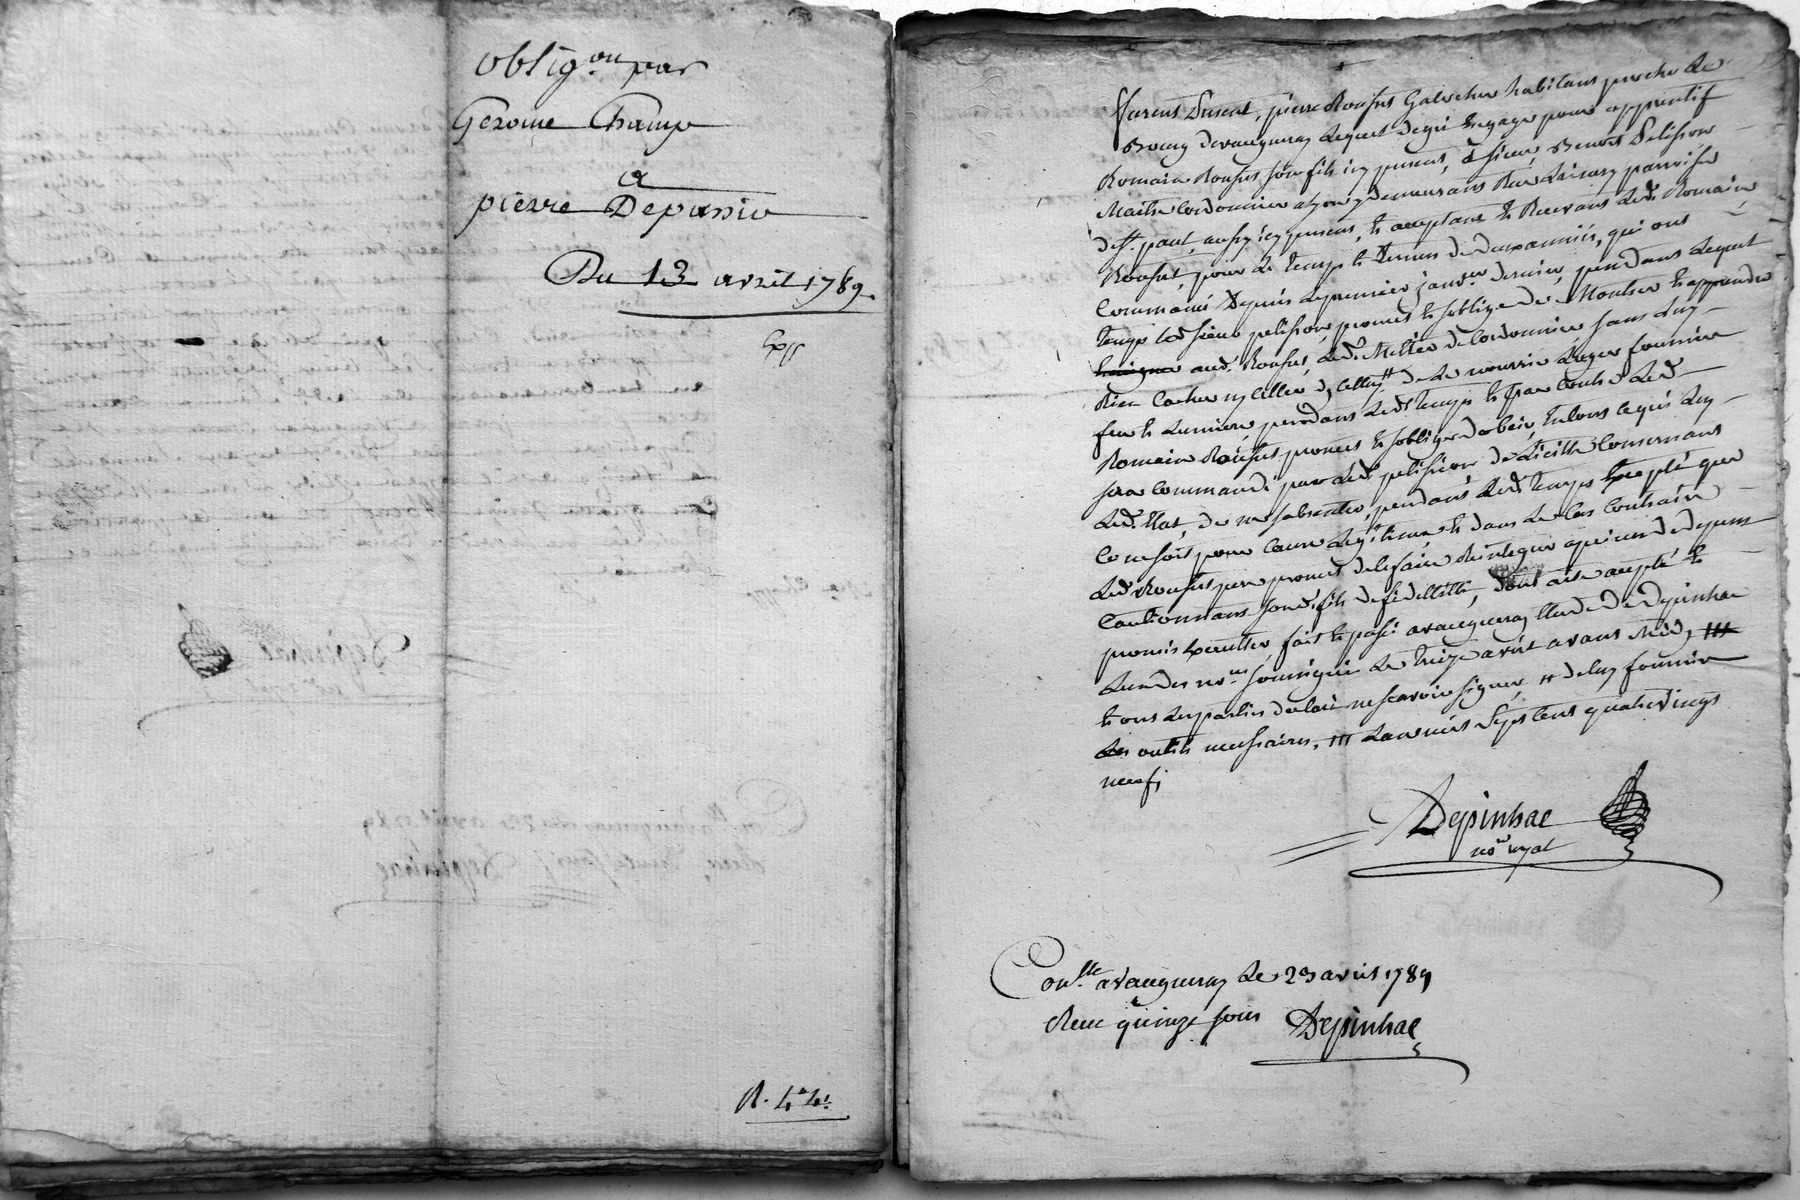 obligon par
Gerome Champ
a
pierre Depassio
Du 13 avril 1789.
Exp
R. 4# 4s
furent present, pierre Roufut Galocher habitant proche le
Bourg devaugneray lequel degré engage pour apprentif
Romain Roufut son fils icy present, à sieur Benoit pelisson
Maitre Cordonnier a lyon y demeurant Rue parroisse
de st paul, aussy icy present, et acceptant et Recevant led. Romain
Roufut, pour le temps et terme de deux années, qui ont
Commancé depuis le premier janver dernier, pendant lequel
temps led sieur pelisson promet et soblige de Montrer et apprendre
aud. Roufut, led. Mettier de Cordonnier sans luy
Rien Cacher ny Celler dycelluy # de le nourrir loger fournir
feu et lumiere pendant led temps et par contre led
Romain Roufut promet et soblige dobeir en tout ce qui luy
sera commandé par led. pelisson de licitte Concernant
led. Etat, de ne sabsenter pendant led temps que
Ce ne soit pour Cause legitime et dans le Cas Contraire
led Roufut pere promet de le faire Reintegrer a peine de depens
Cautionnant sond. fils de fidellitté, dont acte accepté et
promis executter fait et passé a vaugneray Etude de Depinhac
lun des nores soussignés le treize avril avant Midy ///
et ont les parties declaré ne scavoir signer, # de luy fournir
les outils necessaires, /// lan mil sept Cent quatre vingt
neuf,
Depinhac
nore royal
Conlle a vaugneray le 23 avril 1789
Recu quinze sous Depinhac